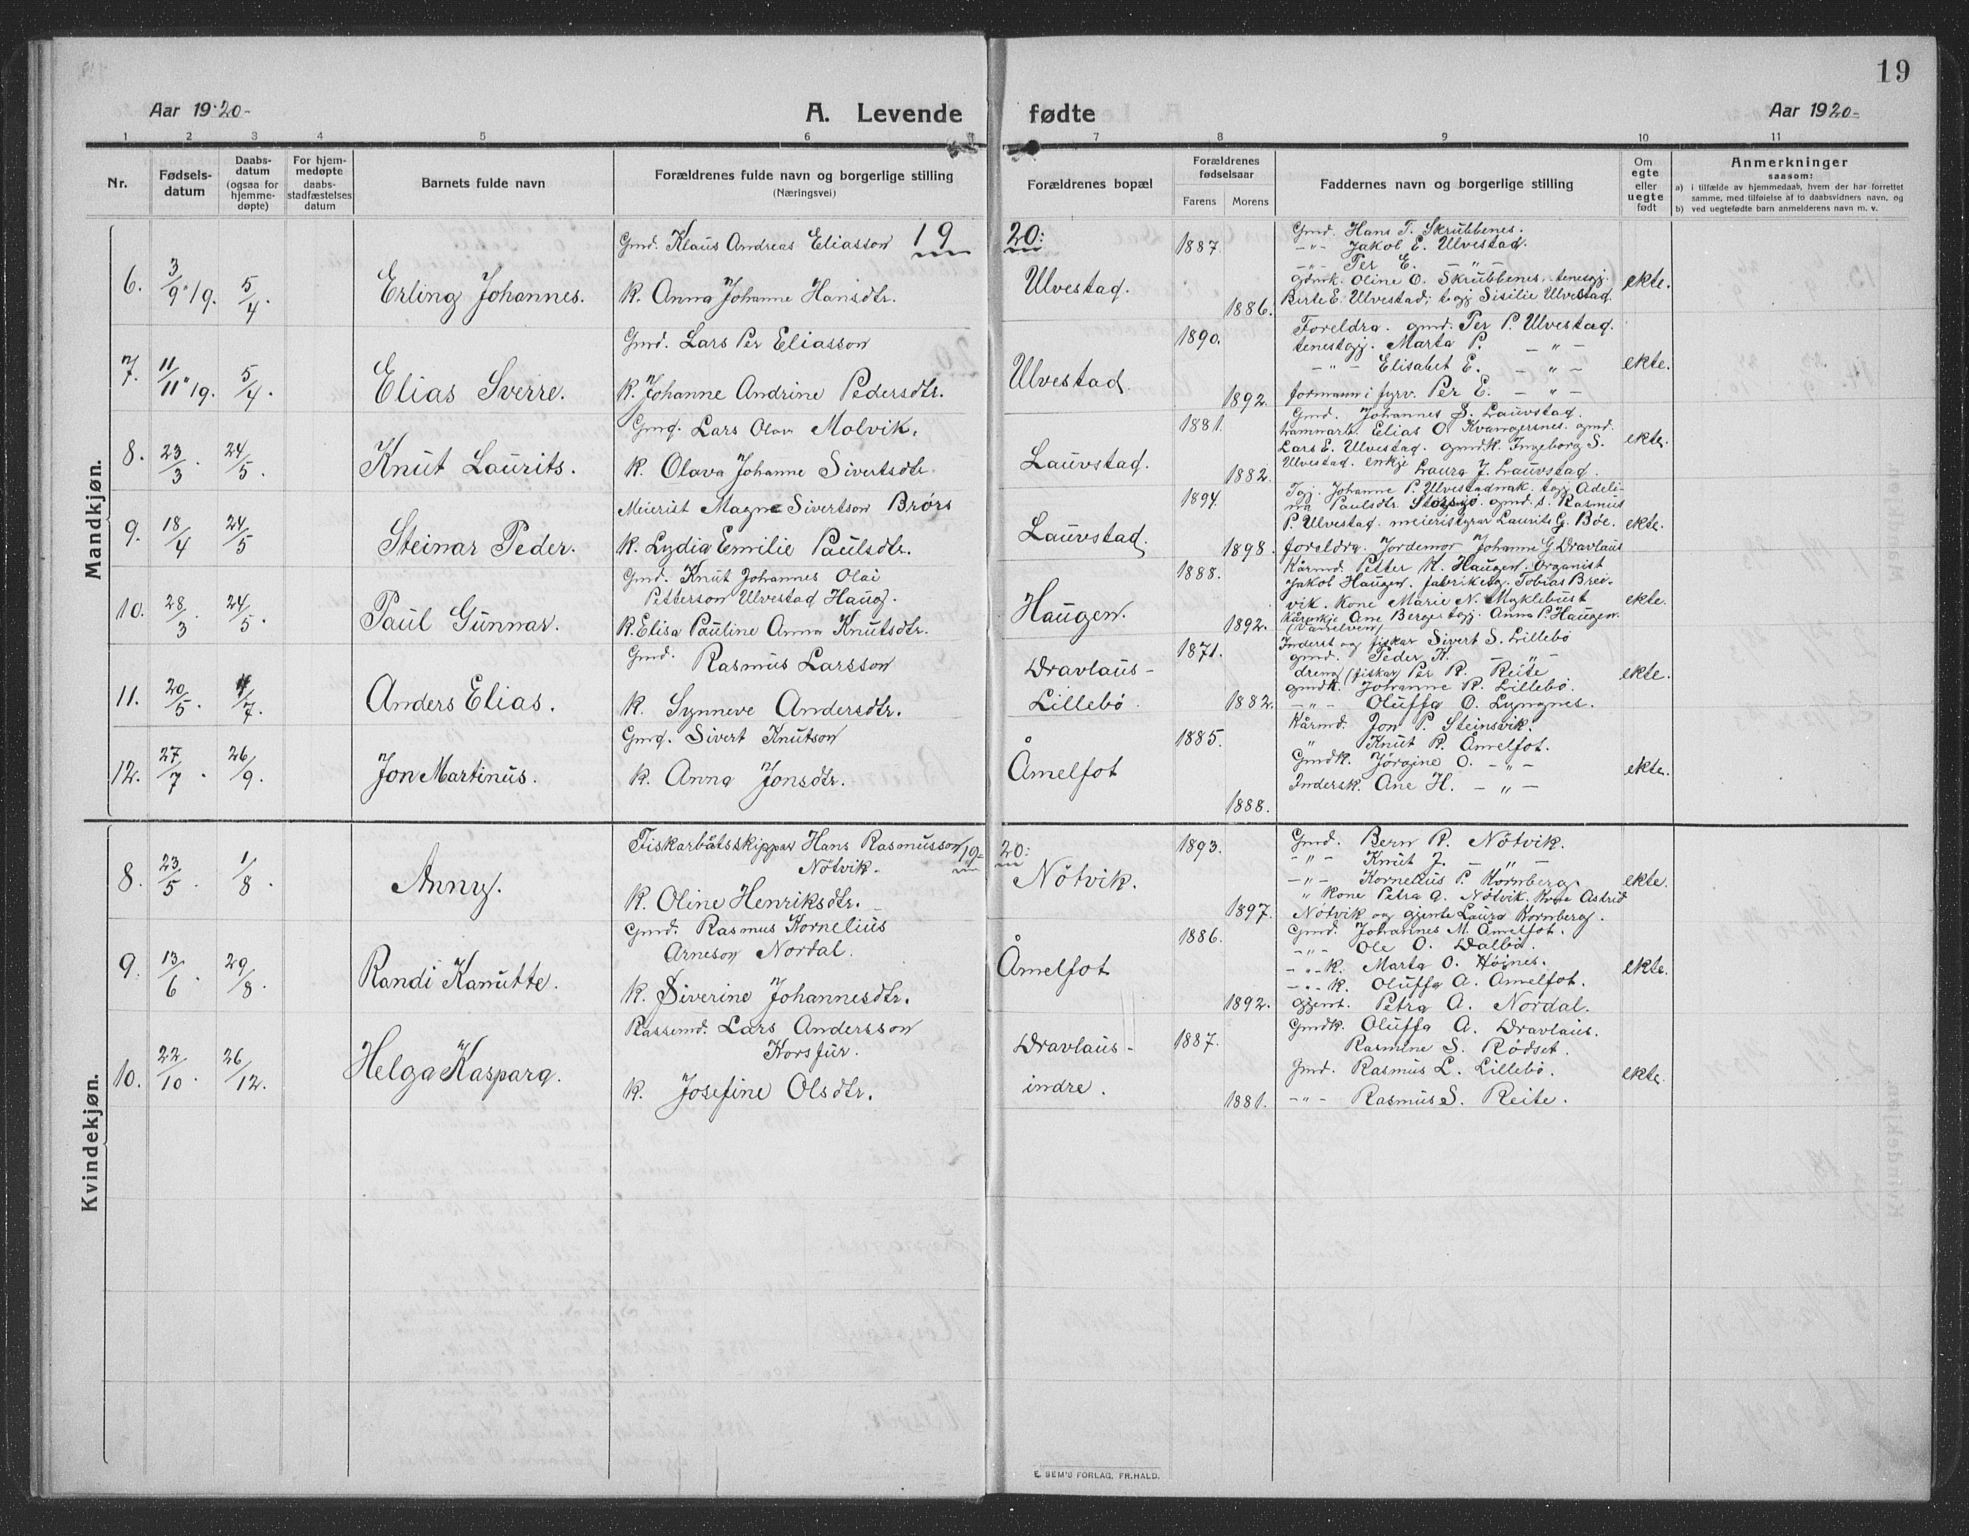 19
Aar 1920-
A. Levende
fødte
Aar 1920-
1 2 3 4 5 6 7 8 9 10 11
Nr.
Fødsels-
datum
Daabs-
datum
(ogsaa for
hjemme-
døpte)
For hjem-
medøpte
daabs-
stadfæstelses
datum
Barnets fulde navn
Forældrenes fulde navn og borgerlige stilling
(Næringsvei)
Forældrenes bopæl
Forældrenes
fødselsaar
Farens Morens
Faddernes navn og borgerlige stilling
Om
egte
eller
uegte
født
Anmerkninger
saasom:
a) i tilfælde av hjemmedaab, hvem der har forrettet
samme, med tilføielse af to daabsvidners navn, og
b) ved uegtefødte barn anmelderens navn m. v.
Mandkjøn.
1920:
6. 3/9 "19. 5/4 Erling Johannes.
Gmd. Klaus Andreas Eliasson
k. Anna Johanne Hansdtr.
Ulvestad.
1887.
1886.
Gmd. Hans T. Skrubbenes.
-"- Jakob E. Ulvestad.
-"- Per E. -"-
gdmk. Oline O. Skrubbenes. tenesgj.
Birte E. Ulvestad; tgj Sisilie Ulvestad.
ekte.
7. 11/11 "19. 5/4. Elias Sverre.
Gmd. Lars Per Eliasson
k. Johanne Andrine Pedersdtr.
Ulvestad
1890.
1892.
Foreldra. gmd. Per P. Ulvestad.
tenestgj. Marta P. -"-
-"- Elisabet E. -"-
formann i fyrv. Per E. -"-
ekte.
8. 23/3. 24/5. Knut Laurits.
Gmd. Lars Olav Molvik.
k. Olava Johanne Sivertsdtr.
Lauvstad.
1881.
1882.
Gmd. Johannes S. Lauvstad.
Elias O. Kvangersnes. gmd.
Lars E. Ulvestad. gmdk. Ingeborg S.
Ulvestad. enkje Laura J. Lauvstad.
ekte.
9. 18/4 24/5 Steinar Peder.
Meierist Magne Sivertson Brørs
k. Lydia Emilie Paulsdtr.
Lauvstad.
1894.
1898.
Tgj. Johanne P. Ulvestadnak. tgj Adeli-
na Paulsdtr. gmd. s. Rasmus
P. Ulvestad. meieristyrar Laurits G. Bøe.
foreldra. Jordemor Johanne G. Dravlaus
ekte.
10. 28/3 24/5. Paul Gunnar.
Gmd. Knut Johannes Olai
Petterson Ulvestad Haug.
k. Elisa Pauline Anna Knutsdtr.
Haugen.
1888.
1892.
Kårmd. Petter K. Haugen. Organist
Jakob Haugen. fabrikeig. Tobias Brei-
vik. Kone Marie N. Myklebust
Kårenkje Ane Berge tgj. Anna P. Haugen.
ekte.
11. 20/5 4/7. Anders Elias.
Gmd. Rasmus Larsson
k. Synneve Andersdtr.
Dravlaus-
Lillebø.
1871.
1882.
Inderst og fiskar Sivert S. Lillebø
gmd. Peder K. -"-
dreng (fiskar Per R. Reite
gmdk. Johanne R. Lillebø.
-"- Oluffa O. Lyngnes.
ekte.
12. 27/7. 26/9. Jon Martinus.
Gmd. Sivert Knutson
k. Anna Jonsdtr.
Åmelfot
1885.
1888.
Kårmd. Jon P. Steinsvik.
" Knut R. Åmelfot.
Gmdk. Jørgine O. -"-
Indersk. Ane H. -"-
ekte.
Kvindekjøn.
1920:
8. 23/5. 1/8. Anny.
Fiskarbåtsskippar Hans Rasmusson
Nötvik.
k. Oline Henriksdtr.
Nötvik.
1893.
1897.
Gmd. Bern R. Nötvik.
-"- Knut J. -"-
-"- Kornelius P. Kornberg
" kone Petra A. Nötvik. Kone Astrid
Nötvik og gjente Laura Kornberg.
ekte.
9. 13/6 29/8. Randi Kanutte.
Gmd. Rasmus Kornelius
Arneson Nordal.
k. Siverine Johannesdtr.
Åmelfot
1886.
1892.
Gmd. Johannes M. Åmelfot.
-"- Ole O. Dalbø.
-"- k. Marta O. Højnes.
-"- k. Oluffa A. Åmelfot.
gjent. Petra A. Nordal.
ekte.
10. 22/10. 26/12. Helga Kaspara.
Rassemd. Lars Andersson
Korsfur.
k. Josefine Olsdtr.
Dravlaus-
indre.
1887.
1881.
Gmdk. Oluffa A. Dravlaus.
Rasmine S. Rødset.
Gmd. Rasmus L. Lillebø.
-"- Rasmus S. Reite.
ekte.
E. SEM'S FORLAG, FR.HALD.